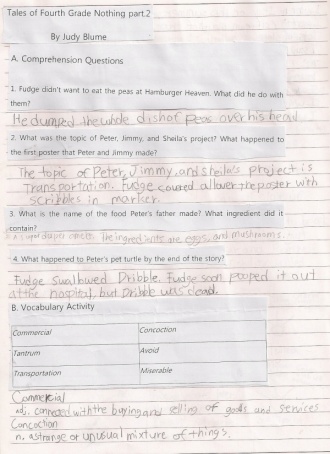 Tales of Fourth Grade Nothing part.2
By Judy Blume
A. Comprehension Questions
1. Fudge didn't want to eat the peas at Hamburger Heaven. What did he do with
them?
He dumped the whole dish of peas over his head
2. What was the topic of Peter, Jimmy, and Sheila's project? What happened to
the first poster that Peter and Jimmy made?
The topic of Peter, Jimmy, and sheila's project is
Transportation. Fudge covered all over the poster with
scribbles in marker.
3. What is the name of the food Peter's father made? What ingredient did it
contain?
The ingredients are eggs, and mushrooms.
4. What happened to Peter's pet turtle by the end of the story?
Fudge Swallowed Dribble. Fudge soon pooped it out
at the hospital, but Dribble was dead.
B. Vocabulary Activity
Commercial Concoction
Tantrum Avoid
Transportation Miserable
Commercial
adj. connected with the buying and selling of goods and services
Concoction
n. a strange or unusual mixture of things.